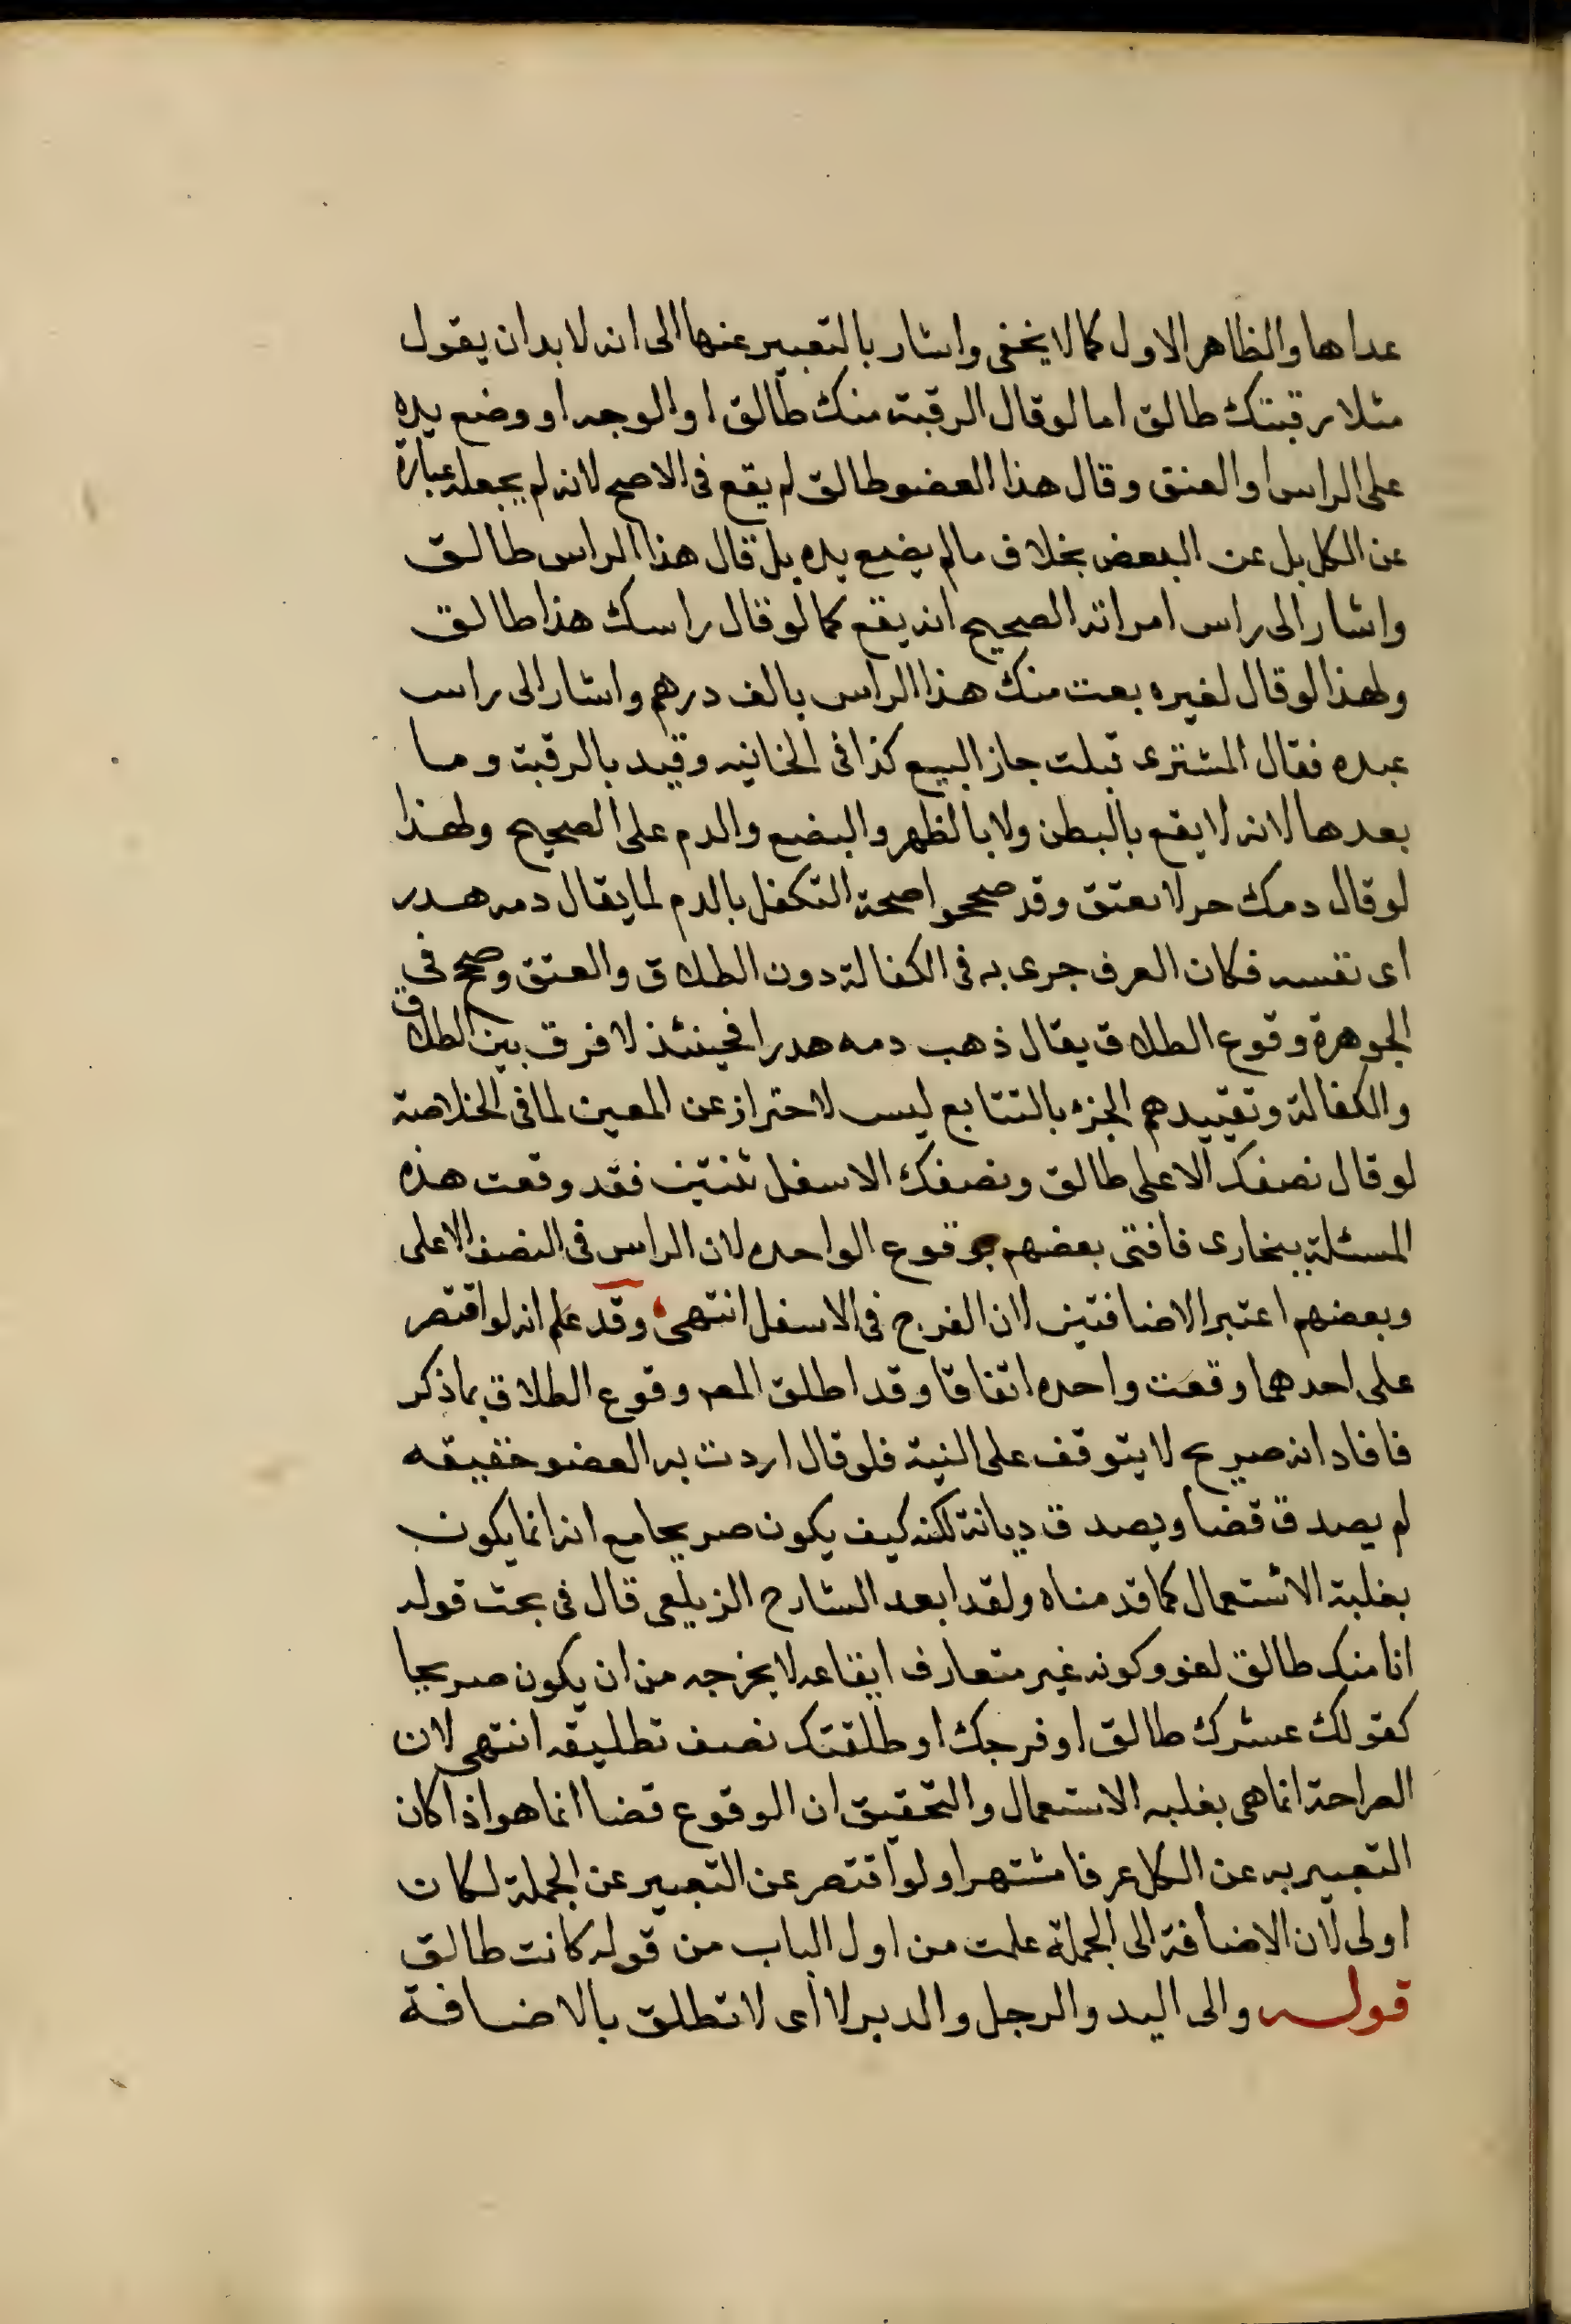 عداها والظاهر الاول كما لا يخفى واشار بالتعبير عنها الى انه لا بد ان يقول
مثلا رقبتك طالق اما لو قال الرقبة منك طالق او الوجه او وضع يده
على الراس او العنق وقال هذا العضو طالق لم يقع فى الاصح لانه لم يجعله عبارة
عن الكل بل عن البعض بخلاف ما لم يضع يده بل قال هذا الراس طالق
واشار الى راس امراته الصحيح انه يقع كما لو قال راسك هذا طالق
ولهذا لو قال لغيره بعت منك هذا الراس بالف درهم واشار الى راس
عبده فقال المشترى قبلت جاز البيع كذا فى الخانيه وقيد بالرقبة وما
بعدها لانه لا يقع بالبطن ولا بالظهر والبضع والدم على الصحيح ولهذا
لو قال دمك حر لا يعتق وقد صححوا صحة التكفل بالدم لما يقال دمه هدر
اى نفسه فكان العرف جرى به فى الكفالة دون الطلاق والعتق وصحح في
الجوهرة وقوع الطلاق يقال ذهب دمه هدرا فحينئذ لا فرق بين الطلاق
والكفالة وتقييدهم الجزء بالتتابع ليس لاحتراز عن المعين لما فى الخلاصة
لو قال نصفك الاعلى طالق ونصفك الاسفل ثنتين فقد وقعت هذه
المسئلة ببخارى فافتى بعضهم بوقوع الواحده لان الراس فى النصف الاعلى
وبعضهم اعتبر الاضافتين لان الفرج فى الاسفل انتهى وقد علم انه لو اقتصر
على احدهما وقعت واحده اتفاقا وقد اطلق المص وقوع الطلاق بما ذكر
فافاد انه صريح لا يتوقف على النية فلو قال اردت به العضو حقيقه
لم يصدق قضا ويصدق ديانة لكنه كيف يكون صريحا مع انه انما يكون
بغلبة الاستعمال كما قدمناه ولقد ابعد الشارح الزيلعى قال فى بحث قوله
انا منك طالق لغو وكونه غير متعارف ايقاعه لا يخرجه من ان يكون صريحا
كقولك عشرك طالق او فرجك او طلقتك نصف تطليقه انتهى لان
الصراحة انما هى بغلبه الاستعمال والتحقيق ان الوقوع قضا انما هو اذا كان
التعبير به عن الكل عرفا مشتهرا ولو اقتصر عن التعبير عن الجملة لكان
اولى لان الاضافة الى الجملة علمت من اول الباب من قوله كانت طالق
قوله والى اليد والرجل والدبر لا اى لا تطلق بالاضافة